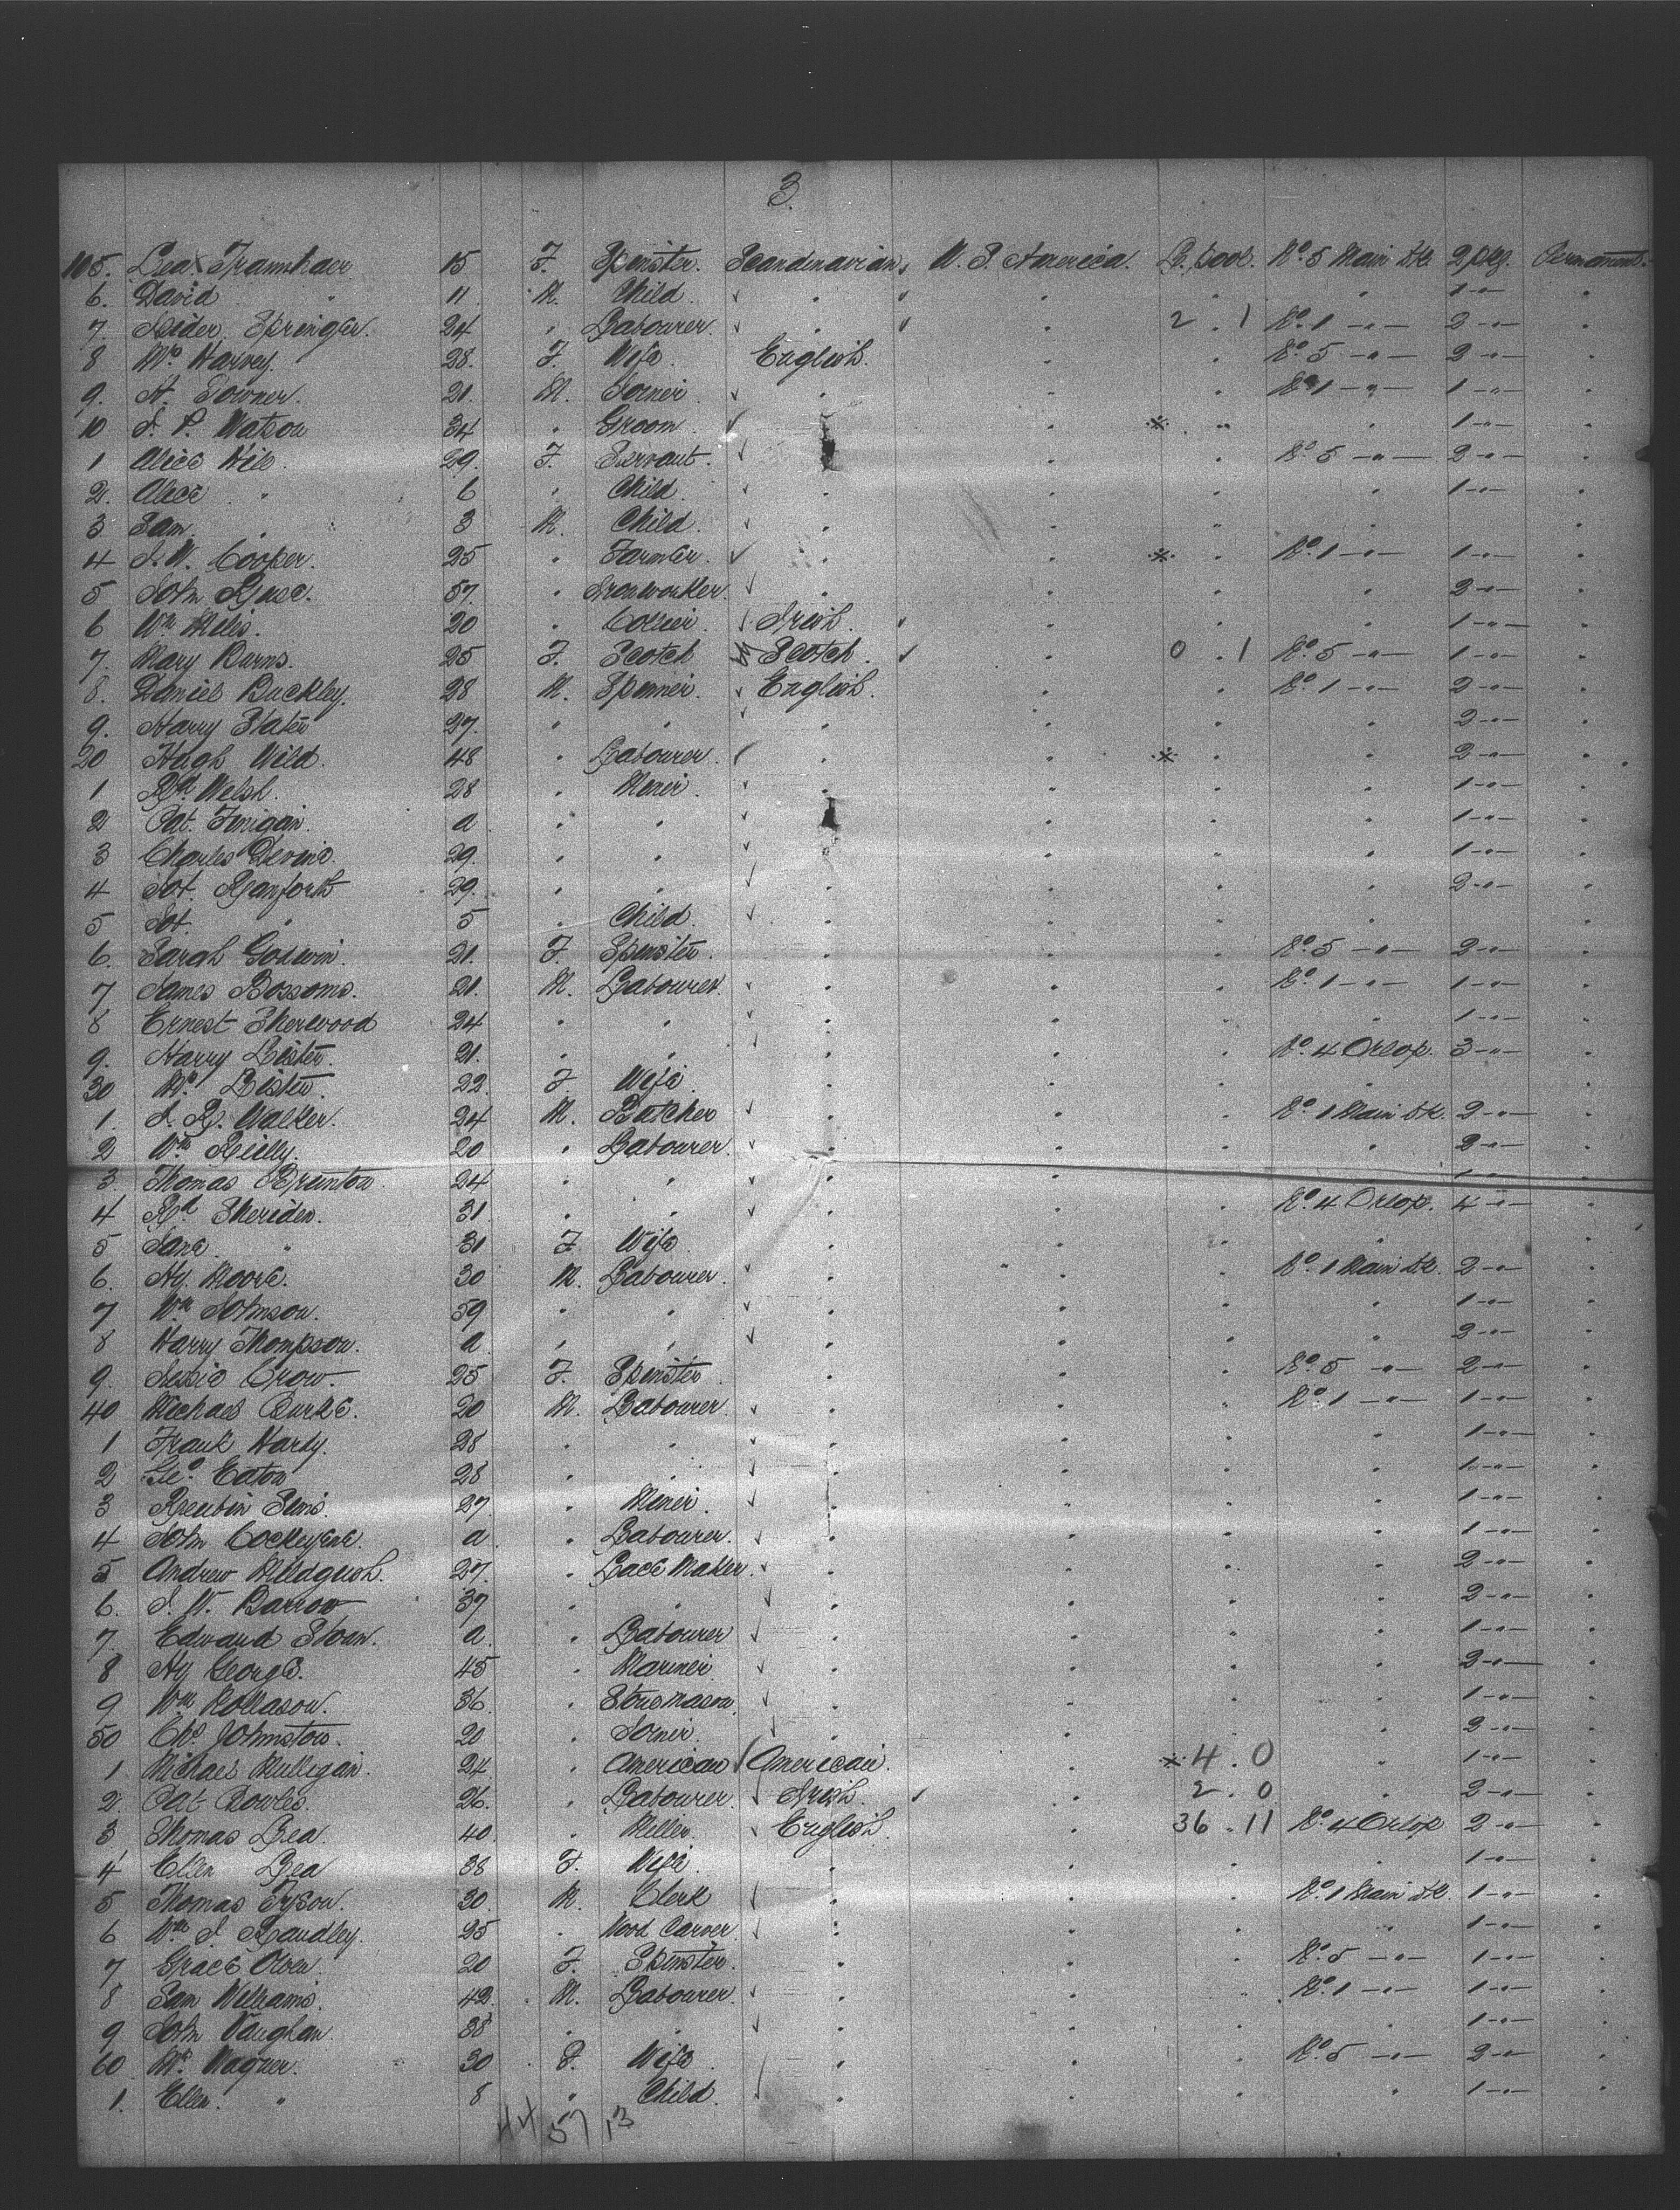 3.
105. Lea Trannhaer 15 F. Spinster. Scandinavian, U. S. America. L. pool. No. 5 Main Dk. 2 pkg. Permanent.
6. David " 11 M. Child " " " " 1 -"- "
7. Springer. 24 " Labourer " " 2 . 1 No. 1 -"- 2 -"- "
8 Mrs Harvey. 28. F. Wife English. " " No. 5 -"- 2 -"- "
9. A. Towner. 21. M. Joiner " " " No. 1 -"- 1 -"- "
10 J. P. Watson 34 " Groom " " * " " 1 -"- "
1 Alice Hill. 29. F. Servant. " " " No. 5 -"- 2 -"- "
2. Alice " 6 " Child " " " " 1 -"- "
3 Sam. " 3 M. Child. " " " " "
4 J. W. Cooper. 25 " Farmer. " " * " No. 1 -"- 1 -"- "
5 John 57. " Ironworker. " " " " 2 -"- "
6 Wm 20 " Collier. Irish. " " " 1 -"- "
7. Mary Burns. 25 F. Scotch Scotch. " 0 . 1 No. 5 -"- 1 -"- "
8. Daniel Buckley. 28 M. English. " " No. 1 -"- 2 -"- "
9. Harry Slater 27. " " " " " " 2 -"- "
20 Hugh Wild. 48 " Labourer. " " * " " 2 -"- "
1 Rd. Welsh. 28 " Miner. " " " " 1 -"- "
2 Pat. Finigan. a " " " " " " 1 -"- "
3 Charles Devine. 29. " " " " " " 1 -"- "
4 Jos. Ranforth 29. " " " " " " 2 -"- "
5 Jos. " 5 " Child. " " " " "
6. Sarah Godwin. 21. F. Spinster. " " " No. 5 -"- 2 -"- "
7 James Bossoms. 21. M. Labourer. " " " No. 1 -"- 1 -"- "
8 Ernest Sherwood 24 " " " " " " 1 -"- "
9. Harry Lister. 21. " " " " " No. 4 Orlop. 3 -"- "
30 Mrs Lister. 22. F. Wife " " " " "
1. J. R. Walker. 24 M. Butcher " " " No. 1 Main Dk. 2 -"- "
2 Wm Reilly. 20 " Labourer. " " " " 2 -"- "
3 Thomas Brunton. 24 " " " " " " 1 -"- "
4 Rd. Sheriden. 31 " " " " " No. 4 Orlop. 4 -"- "
5 Jane. " 31 F. Wife " " " " "
6. Hy. Moore. 30 M. Labourer. " " " No. 1 Main Dk. 2 -"- "
7 Wm Johnson. 59 " " " " " " 1 -"- "
8 Harry Thompson. a " " " " " " 2 -"- "
9. Jessie Crow. 25 F. Spinster " " " No. 5 -"- 2 -"- "
40 Michael Burke. 20 M. Labourer. " " " No. 1 -"- 1 -"- "
1 Frank Hardy. 28 " " " " " " 1 -"- "
2 Geo. Eaton 28 " " " " " " 1 -"- "
3 Reubin Sims. 27 " Miner. " " " " 1 -"- "
4 John Cockayne. a " Labourer. " " " " 1 -"- "
5 Andrew 27. " Lace Maker. " " " " 2 -"- "
6. J. W. Barrow 37 " " " " " " 2 -"- "
7. Edward Sloan. a. " Labourer " " " " 1 -"- "
8 Hy George. 45 " Mariner. " " " " 2 -"- "
9 Wm Rollason. 36. " Stonemason. " " " " 1 -"- "
50 Chs. Johnston. 20 " Joiner. " " " " 2 -"- "
1 Michael Mulligan. 24. " American American. " * 4 . 0 " 1 -"- "
2. Pat Bowles. 26. " Labourer. Irish. " 2 . 0 " 2 -"- "
3 Thomas Lea. 40. " Miller. English. " 36 . 11 No. 4 Orlop 2 -"- "
4 Ellen Lea 38 F. Wife. " " " " 1 -"- "
5 Thomas Tyson. 30. M. Clerk " " " No. 1 Main Dk. 1 -"- "
6 Wm J. Handley. 25 " Wood Carver. " " " " 1 -"- "
7 Grace Owen 20 F. Spinster. " " " No. 5 -"- 1 -"- "
8 Sam Williams. 42. M. Labourer. " " " No. 1 -"- 1 -"- "
9 John Vaughan 38 " " " " " " 1 -"- "
60 Mrs. Wagner. 30 F. Wife " " " No. 5 -"- 2 -"- "
1. Ellen. " 8 " Child. " " " " 1 -"- "
44 57 13